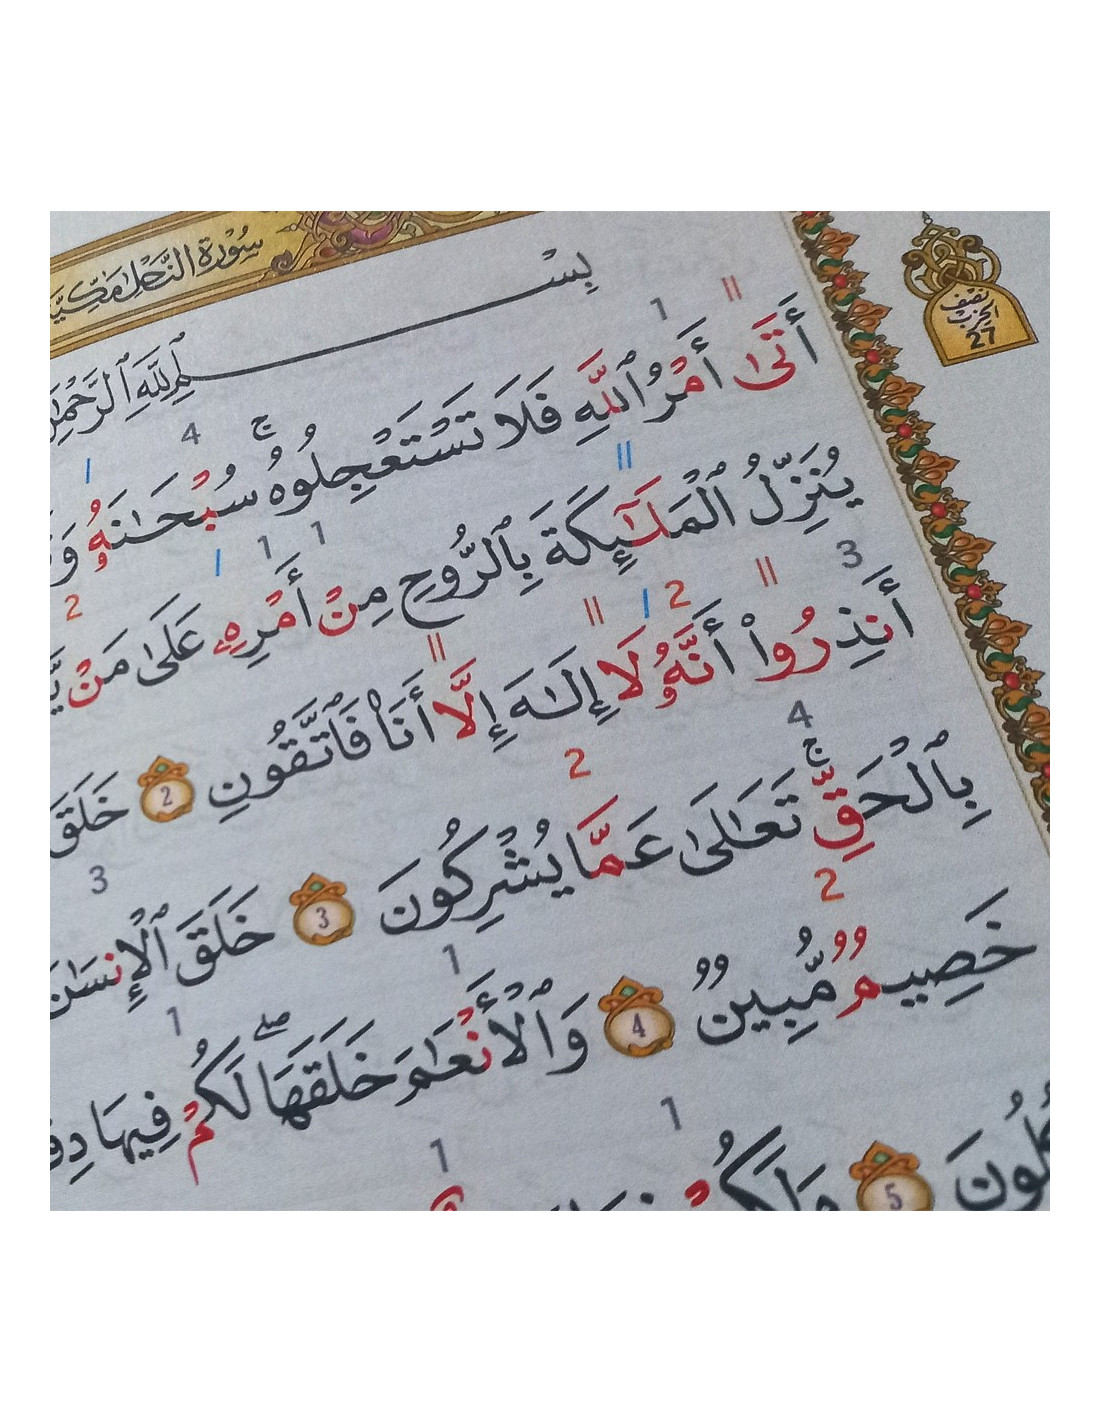 سُورَةُ النَّحْلِ مَكِّيَّ
نِصْفُ
الحِزْب
27
بِسْمِ اللَّهِ الرَّحْمَٰنِ
1 اا
أَتَىٰ أَمْرُ اللَّهِ فَلَا تَسْتَعْجِلُوهُ ۚ سُبْحَٰنَهُۥ وَ
اا 4 ا
يُنَزِّلُ الْمَلَٰٓئِكَةَ بِالرُّوحِ مِنْ أَمْرِهِۦ عَلَىٰ مَنْ
3 اا 2 ا اا 1 1 ا 2
أَنذِرُوا۟ أَنَّهُۥ لَا إِلَٰهَ إِلَّا أَنَا۠ فَاتَّقُونِ 2 خَلَقَ
4 2 اا
بِالْحَقِّ ۚ تَعَٰلَىٰ عَمَّا يُشْرِكُونَ 3 خَلَقَ الْإِنسَٰنَ
2 3
خَصِيمٌ مُّبِينٌ 4 وَالْأَنْعَٰمَ خَلَقَهَا ۖ لَكُمْ فِيهَا
1 1
5 وَلَكُمْ
1 1